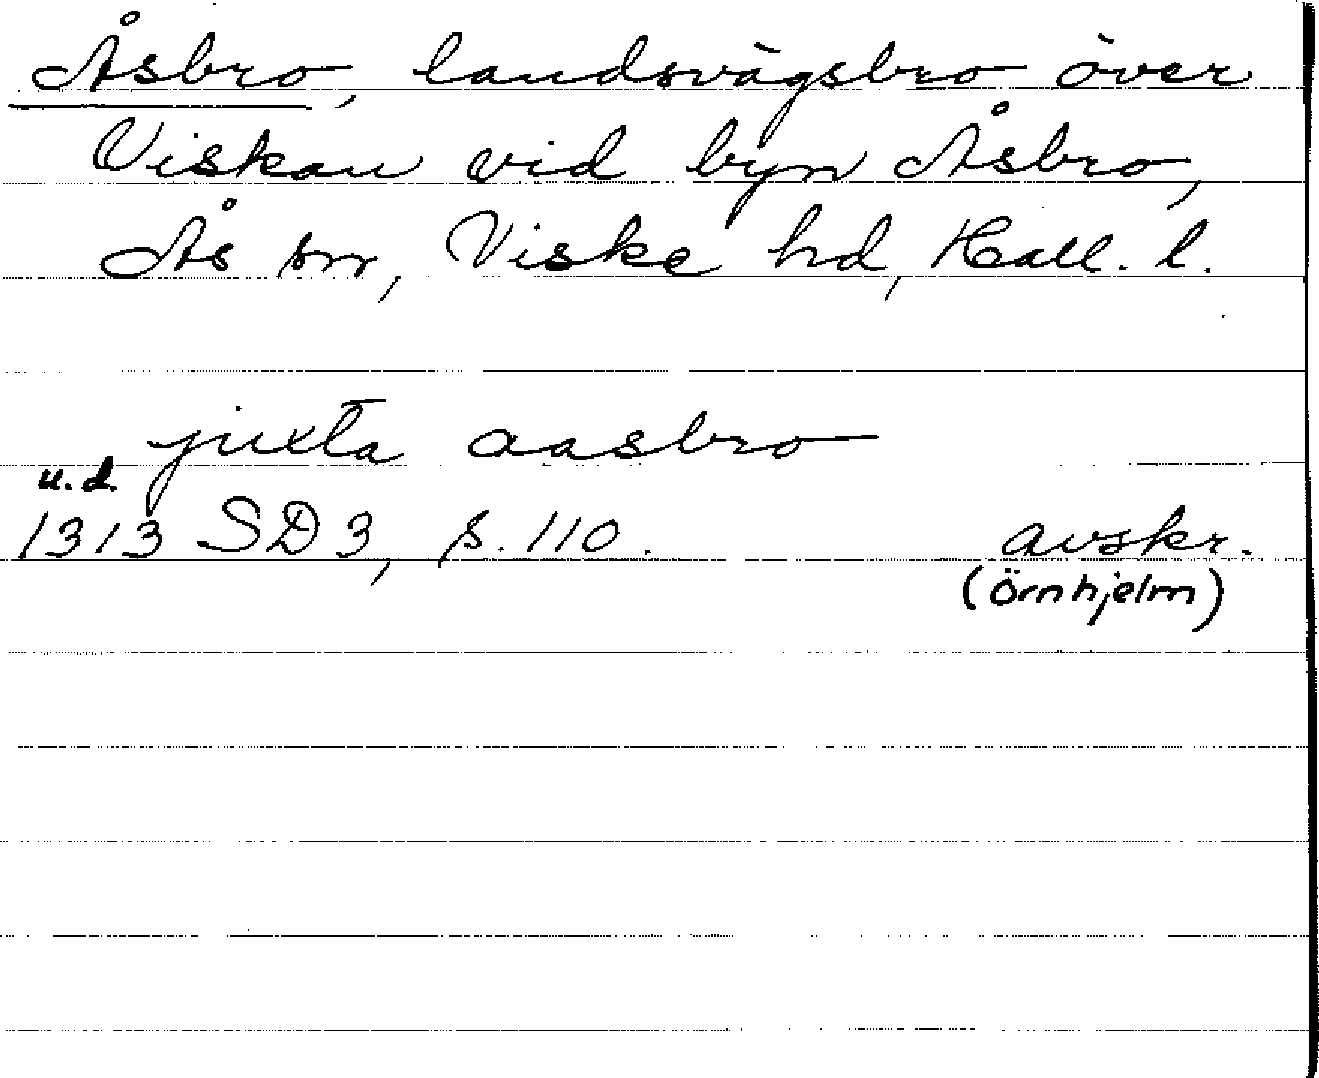 Åsbro, landsvägsbro över
Viskan vid byn Åsbro,
Ås sn, Viske hd, Hall. l.
juxta aasbro
u.d.
1313 SD 3, s. 110. avskr.
(Örnhjelm)